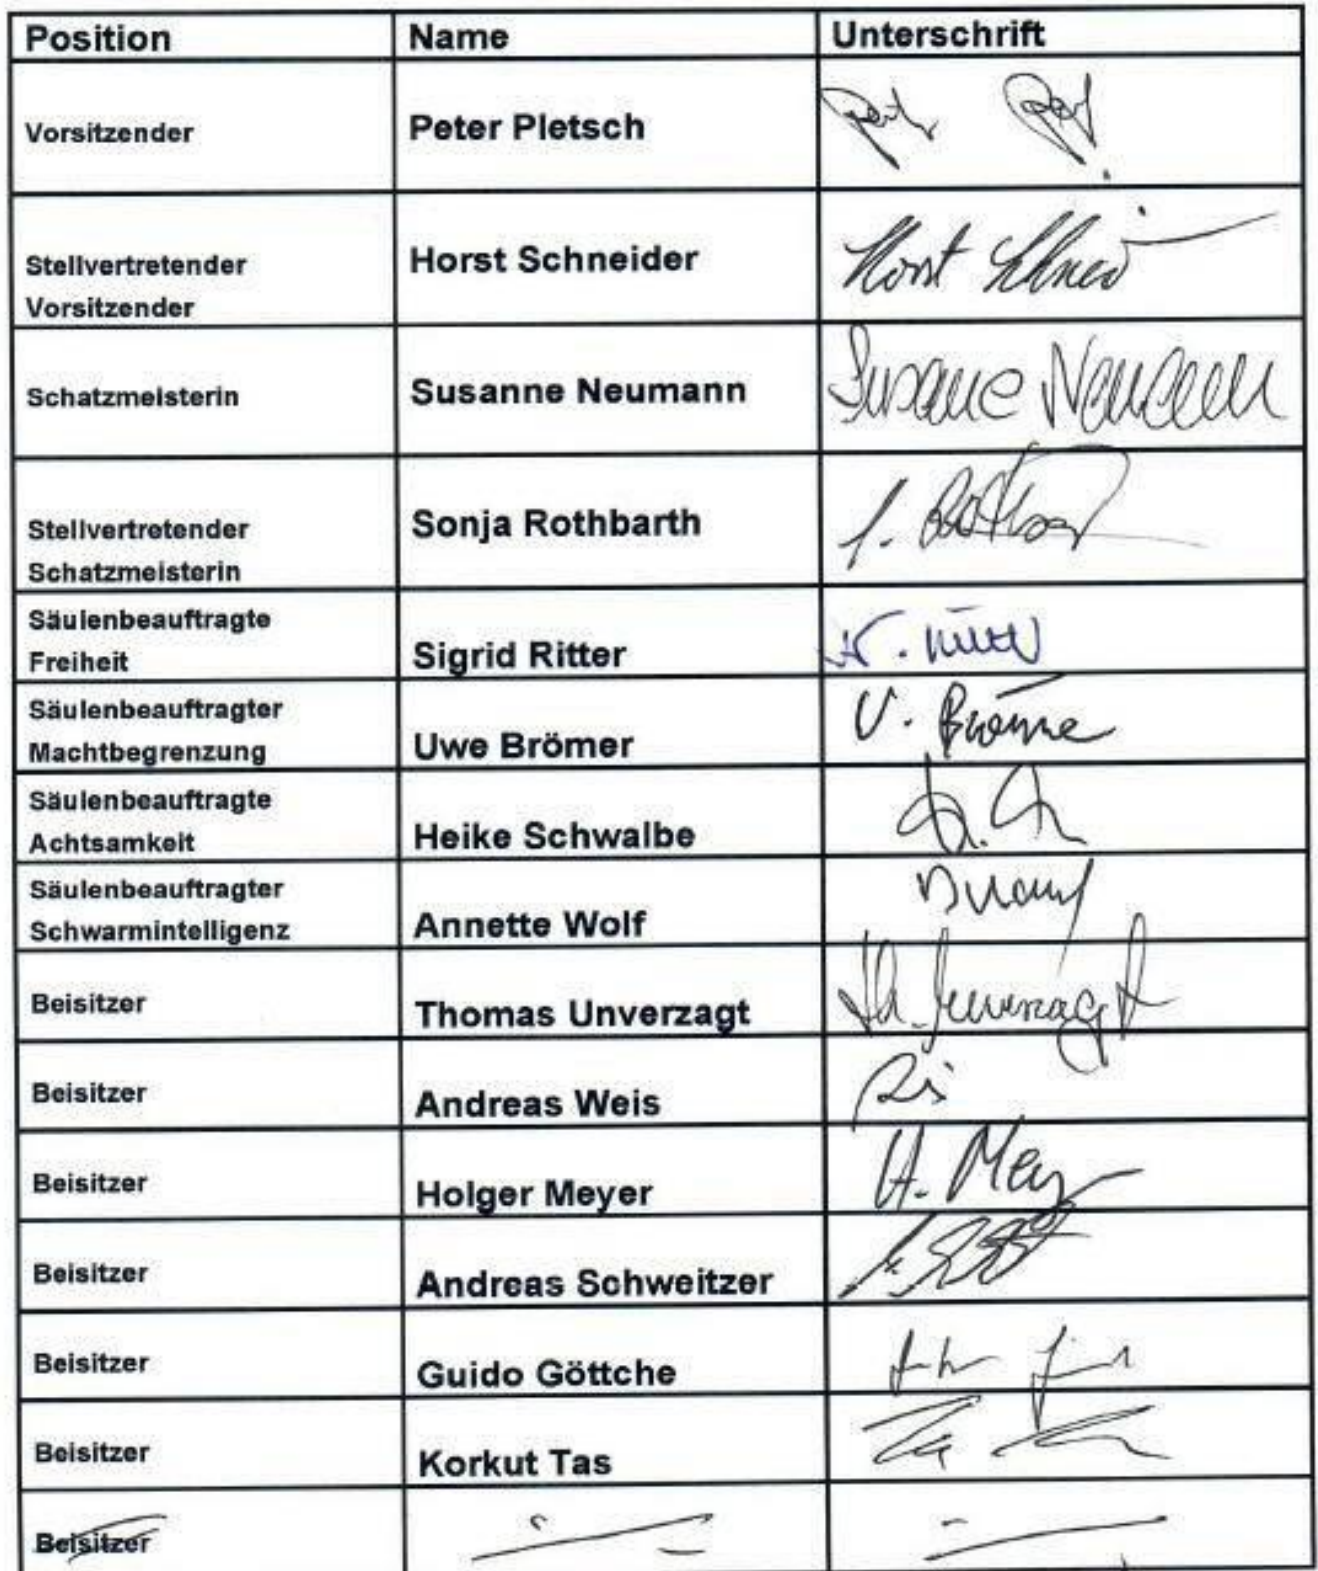 Position Name Unterschrift
Vorsitzender Peter Pletsch
Stellvertretender Horst Schneider Horst Schnei
Vorsitzender
Schatzmeisterin Susanne Neumann Susanne Neumann
Stellvertretender Sonja Rothbarth S. Rothbart
Schatzmeisterin
Säulenbeauftragte
Freiheit Sigrid Ritter
Säulenbeauftragter
Machtbegrenzung Uwe Brömer U. Brömer
Säulenbeauftragte
Achtsamkeit Heike Schwalbe
Säulenbeauftragter
Schwarmintelligenz Annette Wolf
Beisitzer Thomas Unverzagt Th. Unverzagt
Beisitzer Andreas Weis
Beisitzer Holger Meyer H. Mey
Beisitzer Andreas Schweitzer
Beisitzer Guido Göttche
Beisitzer Korkut Tas
Beisitzer